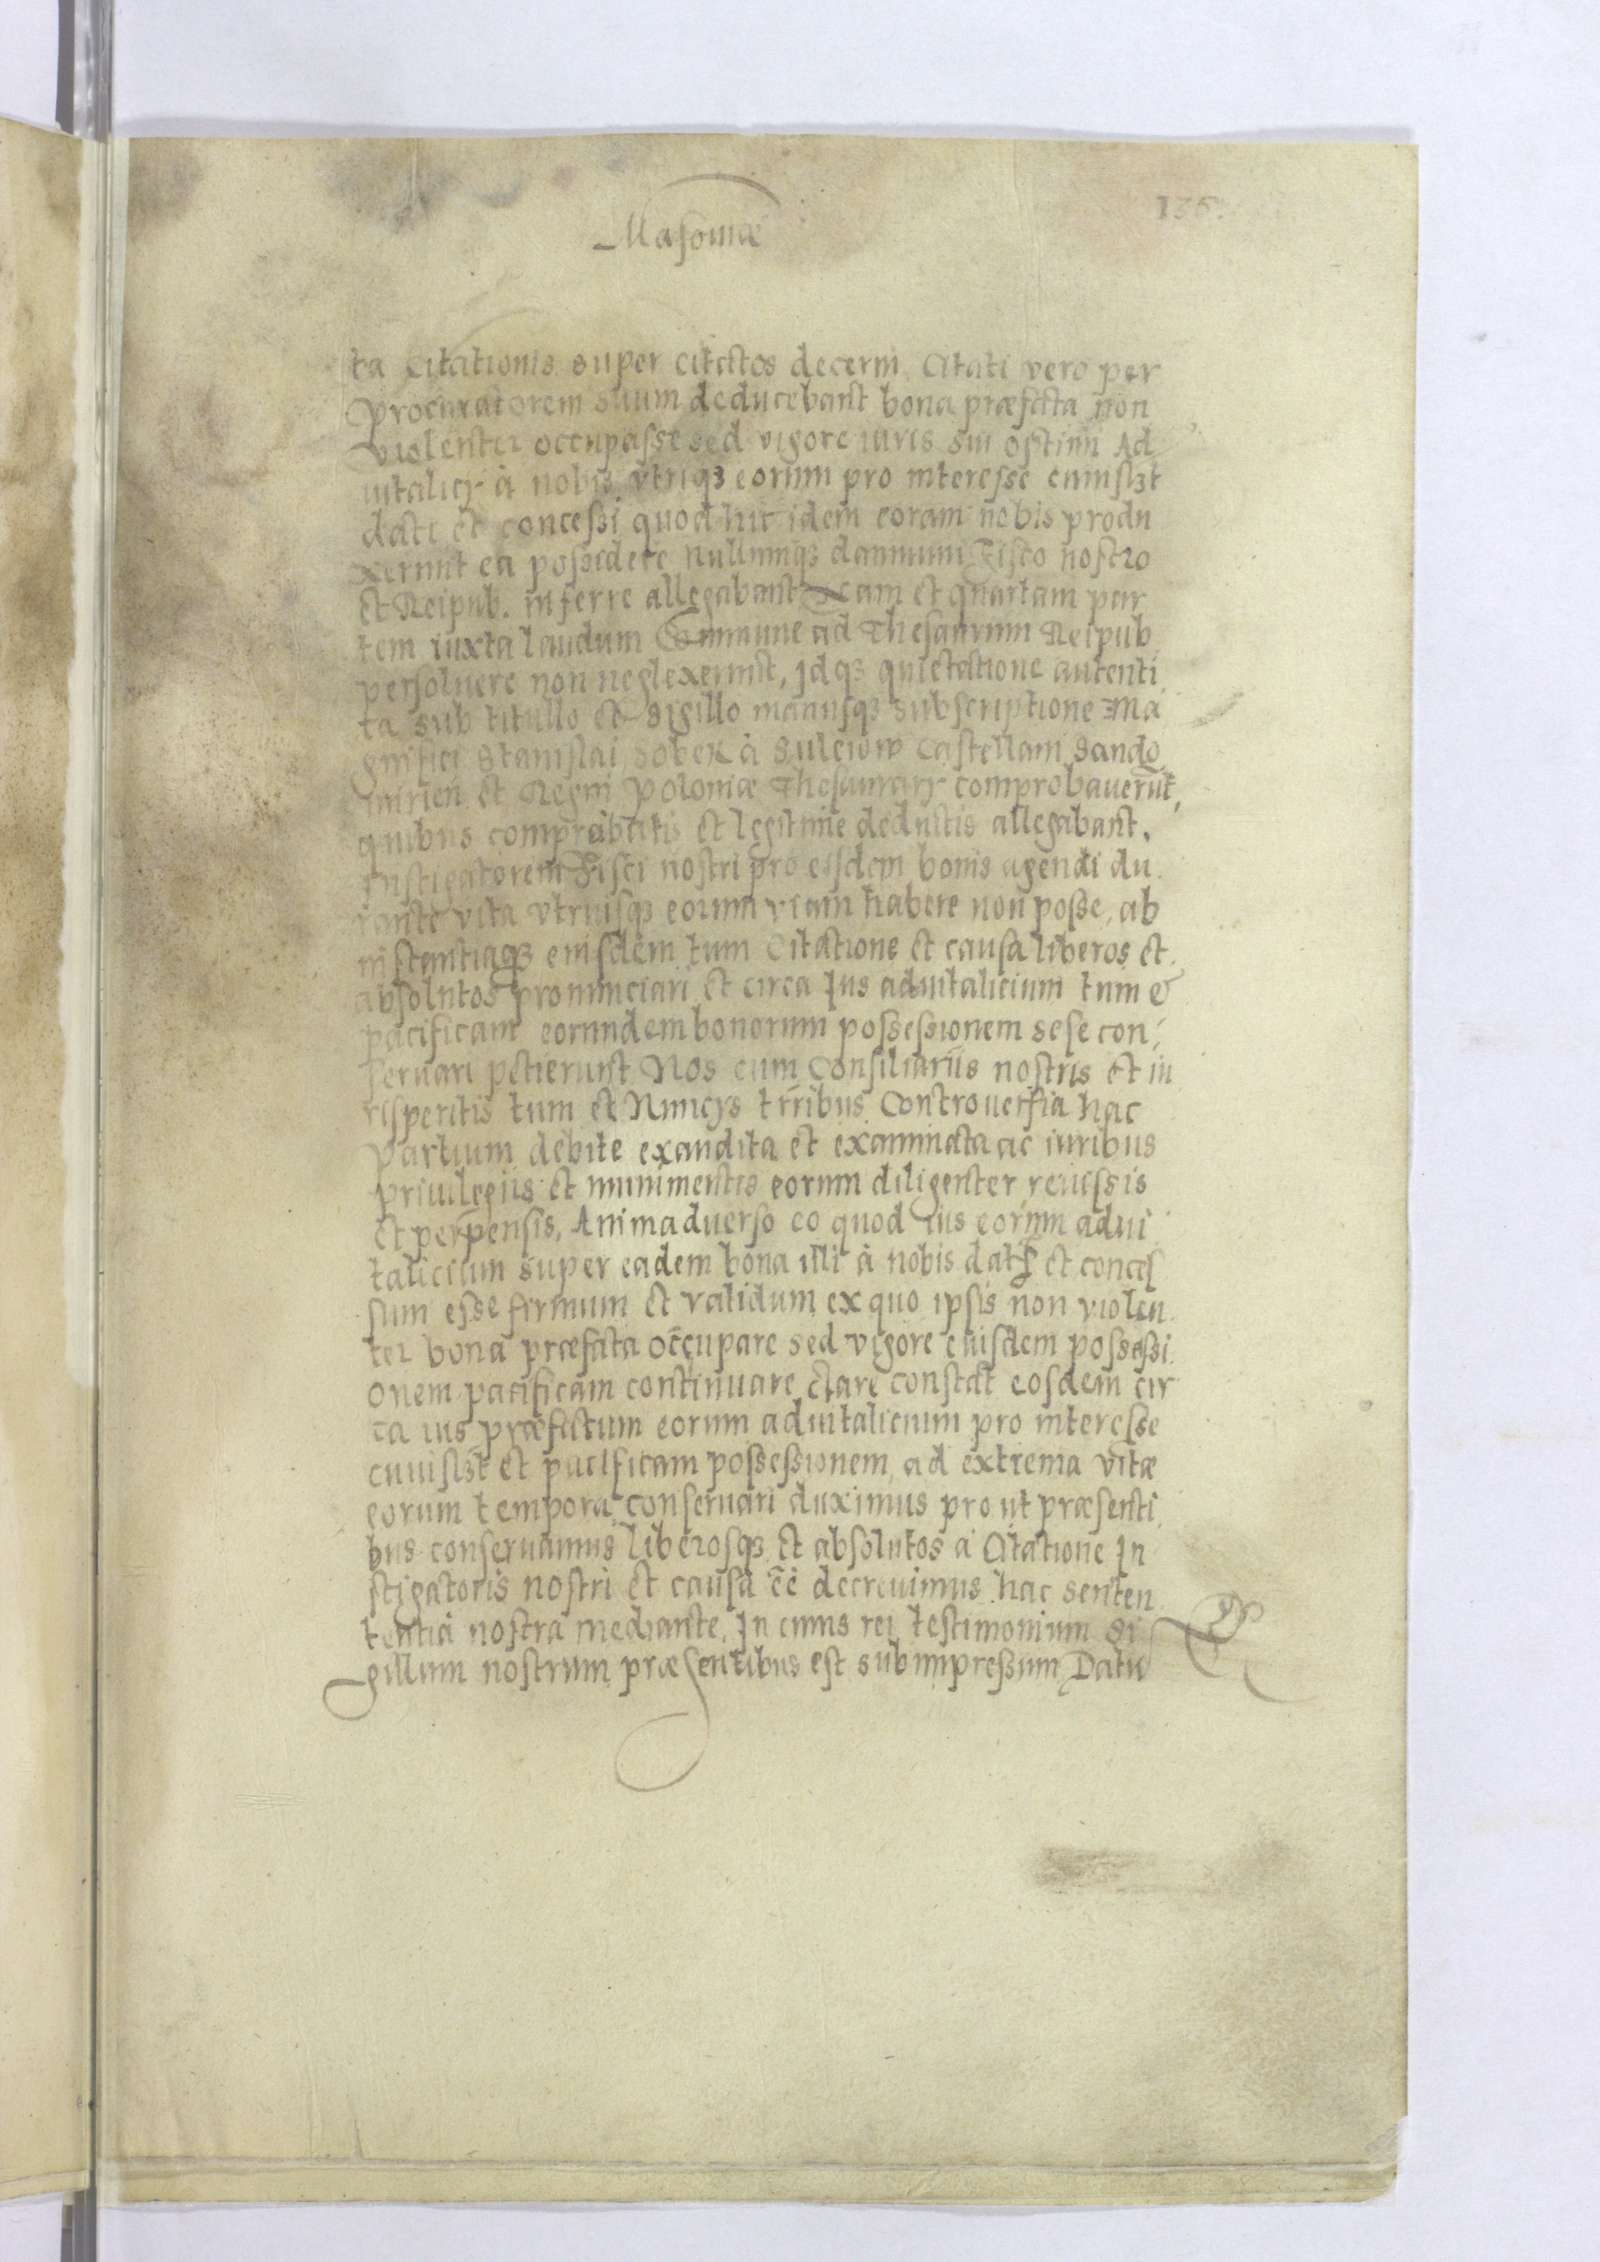 Masoviæ
136.
ta Citationis super citatos decerni. Citati vero per
procuratorem suum deducebant bona præfata non
violenter occupasse sed vigore iuris sui optimi Ad
vitalicij à nobis vtriqꝫ eorum pro interesse cuiuslꝫt
dati et concessi quod hic idem coram nobis produ
xerunt ea possidere nullumqꝫ damnum Fisco nostro
et Reipub. inferre allegabant eam et quartam par
tem iuxta laudum Commune ad Thesaurum Reipub
persoluere non neglexerunt, idqꝫ quietatione autenti
ca sub titullo et sigillo manusqꝫ subscriptione Ma
gnifici Stanislai Sobek à Sulciow Castellani Sando
mirien et Regni Poloniæ Thesaurarij comprobauerūt,
quibus comprobatis et legitime deductis allegabant.
Instigatorem Fisci nostri pro eisdem bonis agendi du
rante vita vtriusqꝫ eorum viam habere non posse, ab
instantiaqꝫ eiusdem tum Citatione et causa liberos et
absolutos pronunciari et circa Ius aduitalicium tum &
pacificam eorundem bonorum possessionem sese con
seruari petierunt Nos cum Consiliariis nostris et iu
risperitis tum et Nuncijs trribus Controuersia hac
partium debite exaudita et examinata ac iuribus
priuilegiis et munimentis eorum diligenter reuissis
et perpensis, Animaduerso eo quod ius eorum adui
talicium super eadem bona illi à nobis dat et conces
sum esse firmum et validum ex quo ipsis non violen
ter bona præfata occupare sed vigore eiusdem possessi
onem pacificam continuare clare constat eosdem cir
ca ius præfatum eorum aduitalicium pro interesse
cuiuslꝫt et pacificam possessionem ad extrema vitæ
eorum tempora conseruari duximus pro ut præsenti
bus conseruamus liberosqꝫ et absolutos a Citatione In
stigatoris nostri et causa ēē decreuimus hac senten
tentia nostra mediante. In cuius rei testimonium si
gillum nostrum præsentibus est subimpressum Datu